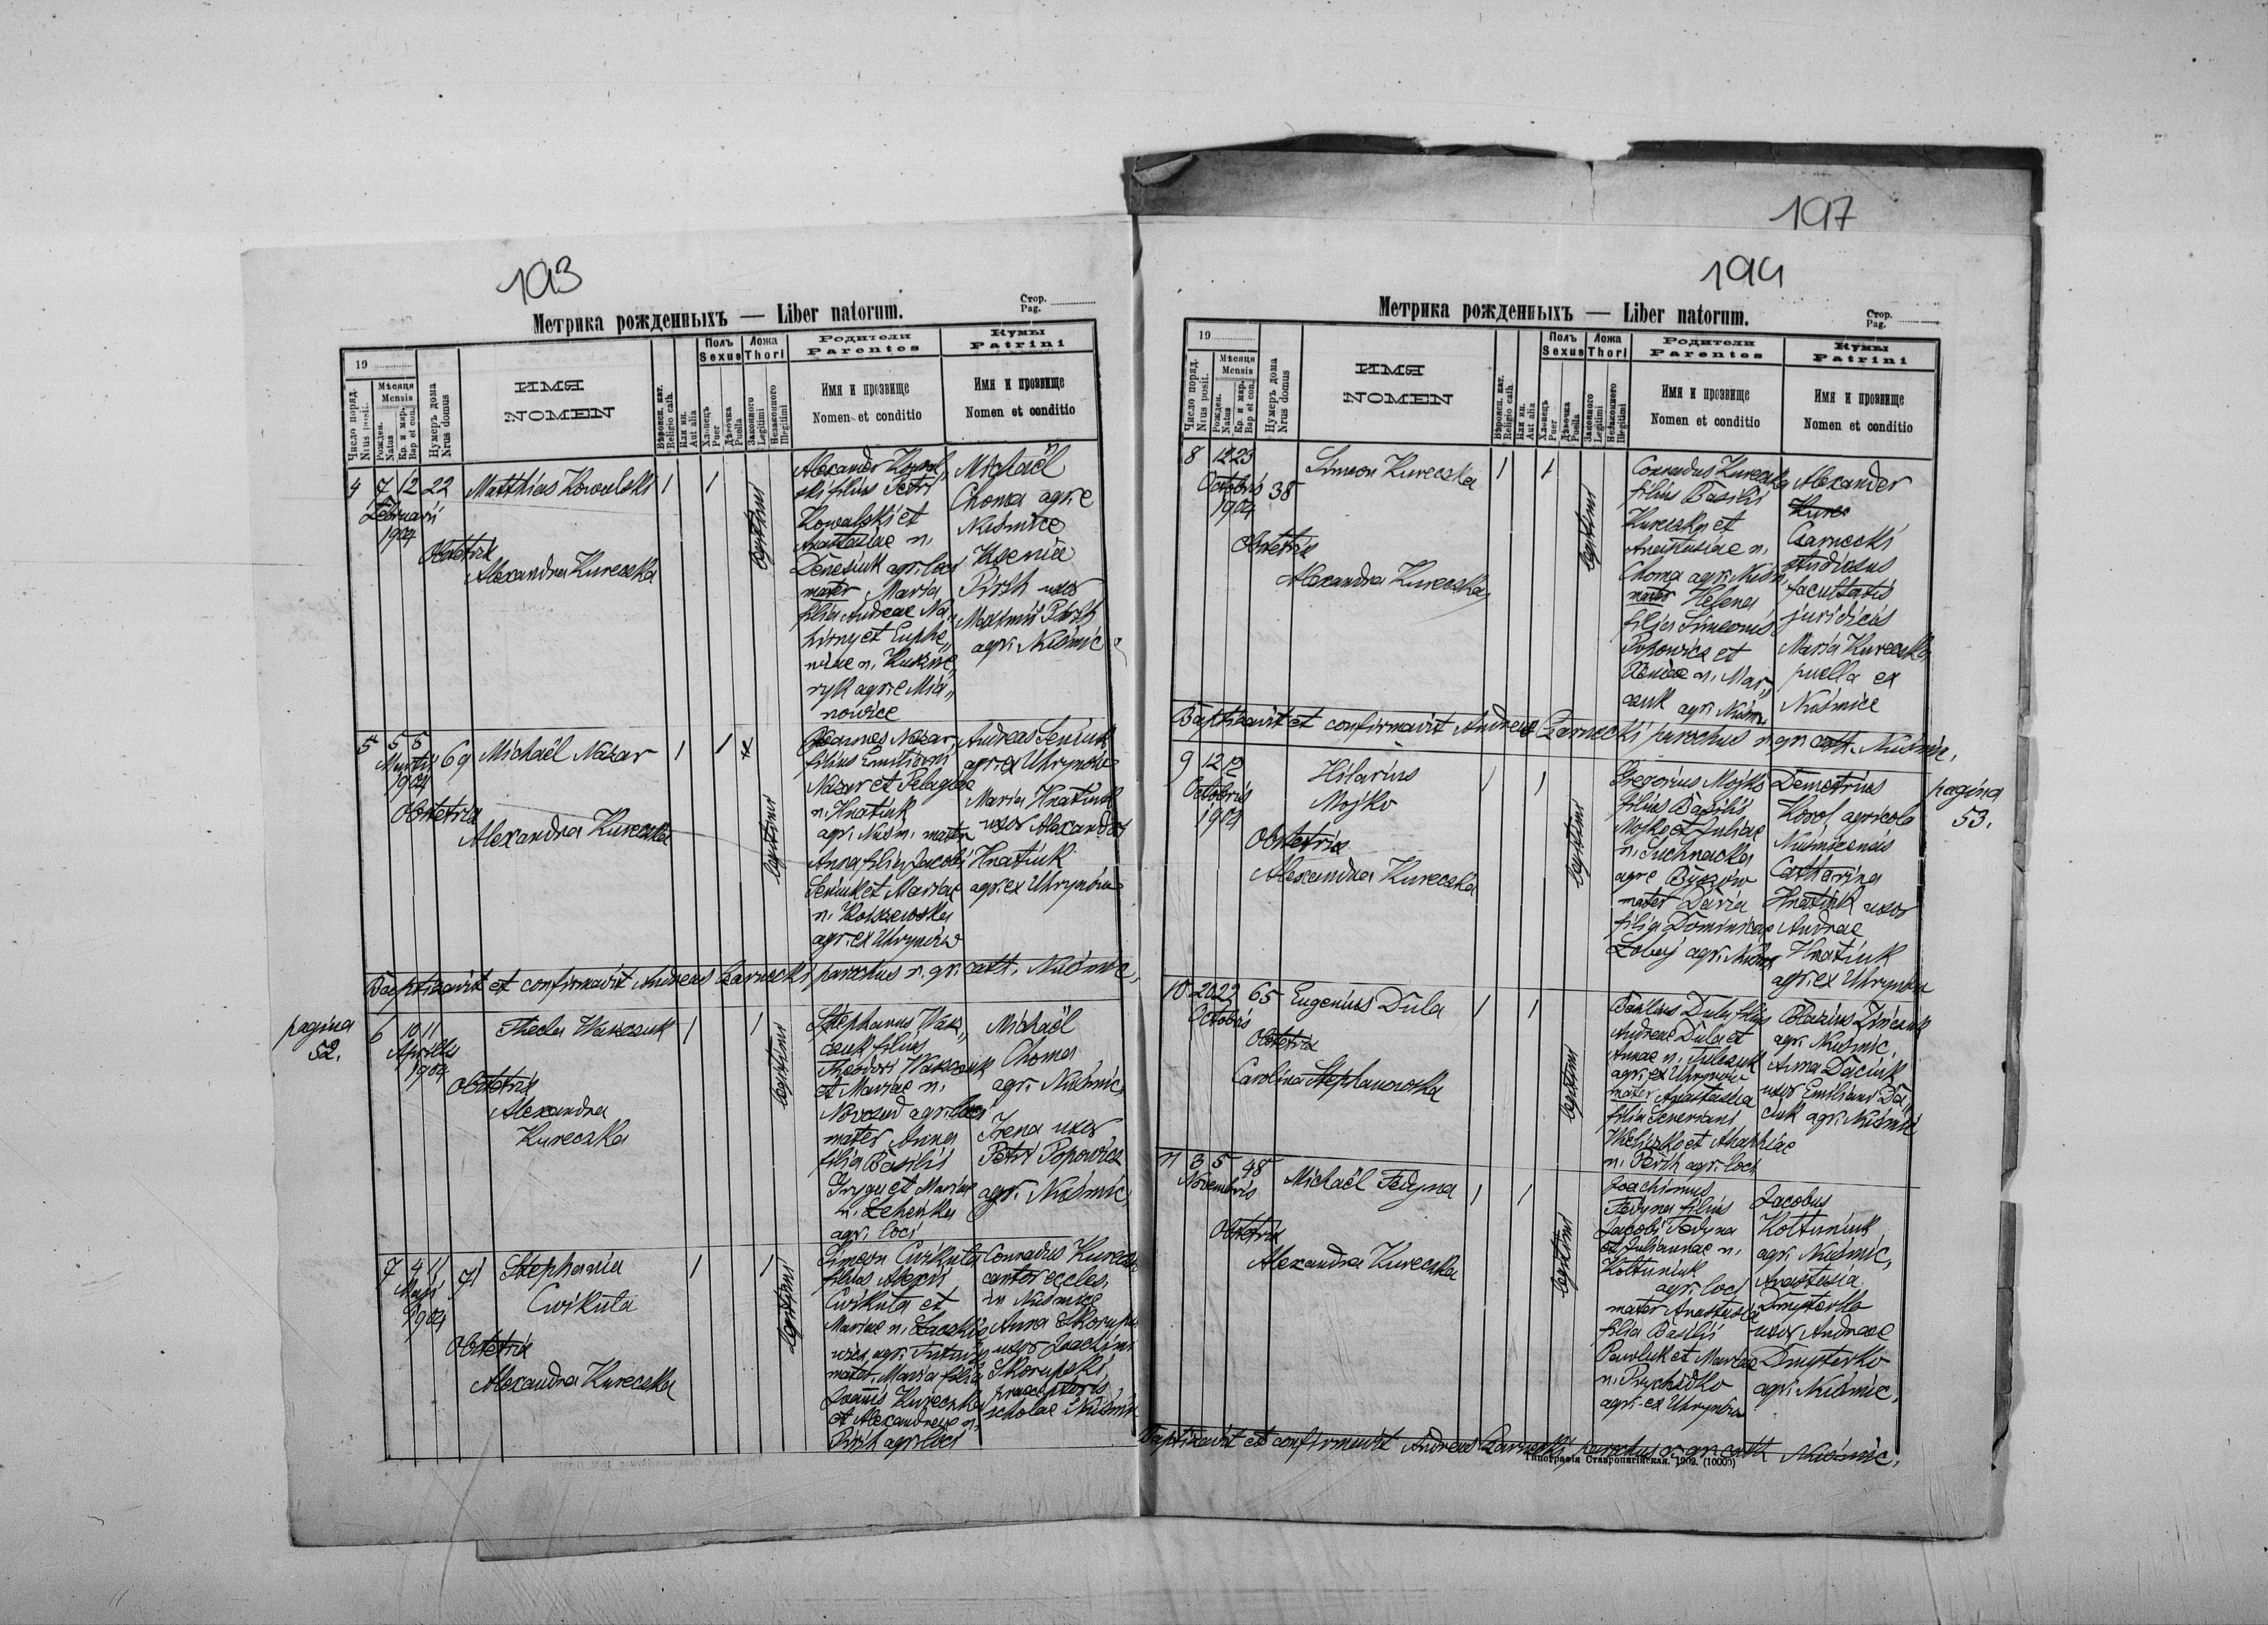 193
Метрика рожденныхъ — Liber natorum.
Стор.
Pag.
19
Число поряд.
Nrus posit.
Мѣсяця
Mensis
Рожден.
Natus
Кр. и мир.
Bap et con.
Нумеръ дома
Nrus domus
ИМЯ
NOMEN
Вѣроисп. кат.
Religio cath.
Или ин.
Aut alia
Полъ
Sexus
Хлопецъ
Puer
Дѣвочка
Puella
Ложа
Thori
Законного
Legitimi
Незаконного
Illegitimi
Родители
Parentes
Имя и прозвище
Nomen et conditio
Кумы
Patrini
Имя и прозвище
Nomen et conditio
4 7 12 22 Matthias Kowalski 1 1
Februarii
1904
Obstetrix
Alexandra Kurecska
legitimi
Alexander Kowal,,
ski filius Petri
Kowalski et
Anastasiae n.
Denesiuk agr. loci
mater Maria
filia Andreae Na,,
hirny et Euphe,,
miae n.
ryk agr. e Mia,,
nowice
Michaël
Choma agr. e
Nuśmice
Ksenia
Pirih uxor
Maximi Pirih
agr. Nuśmic
5 5 8 69 Michaël Nazar 1 1
Martii
1904
Obstetrix
Alexandra Kurecska
legitimi
Joannes Nazar
filius Emiliani
Nazar et Pelagiae
n. Hnatiuk
agr. Nuśm. mater
Anna filia Jacobi
Seniuk et Mariae
n.
agr. ex Uhrynów
Andreas Seniuk
agr. ex Uhrynów
Maria Hnatiuk
uxor Alexandri
Hnatiuk
agr. ex Uhrynów
Baptizavit et confirmavit Andreas Czarnecki parochus r. gr. cath. Nuśmic,
pagina
52.
6 10 11 Thecla Waszczuk 1 1
Aprilis
1904
Obstetrix
Alexandra
Kurecska
legitimi
Stephanus Wasz,,
czuk filius
Theodori Waszczuk
et Mariae n.
agr. loci
mater Anna
filia Basilii
et Mariae
n.
agr. loci
Michaël
Choma
agr. Nuśmic,
Irena uxor
Petri Popowicz
agr. Nuśmic,
7 4 11 71 Stephania
Maji Cwikuta
1904
1 1
Obstetrix
Alexandra Kurecska
legitimi
Simeon Cwikuta
filius Alexii
Cwikuta et
Mariae n.
mater Maria filia
Joannis Kurecska
et Alexandrae n.
Pirih agr. loci
Conradus Kurecska
cantor eccles.
in Nuśmice
Anna Skorupska
uxor Joachimi
Skorupski
praeceptoris
scholae Nuśmic
197
194
Метрика рожденныхъ — Liber natorum.
Стор.
Pag.
19
Число поряд.
Nrus posit.
Мѣсяця
Mensis
Рожден.
Natus
Кр. и мир.
Bap et con.
Нумеръ дома
Nrus domus
ИМЯ
NOMEN
Вѣроисп. кат.
Religio cath.
Или ин.
Aut alia
Полъ
Sexus
Хлопецъ
Puer
Дѣвочка
Puella
Ложа
Thori
Законного
Legitimi
Незаконного
Illegitimi
Родители
Parentes
Имя и прозвище
Nomen et conditio
Кумы
Patrini
Имя и прозвище
Nomen et conditio
8 12 23 Simeon Kurecska 1 1
Octobris 38
1904
Obstetrix
Alexandra Kurecska
legitimi
Conradus Kurecska
filius Basilii
Kurecska et
Anastasiae n.
Choma agr. Nuśm.
mater Helena
filia Simeonis
Popowicz et
n. Mar,,
czuk agr. Nuśm.
Alexander
Kurec
Czarnecki
studiosus
facultatis
juridicis
Maria Kurecska
puella ex
Nuśmice
Baptizavit et confirmavit Andreas Czarnecki parochus r. gr. cath. Nuśmic,
9 12 Hilarius 1 1
Octobris Mojko
1904
Obstetrix
Alexandra Kurecska
legitimi
Gregorius Mojko
filius Basilii
Mojko et Juliae
n. Suchnacka
agr. e Byszów
mater Daria
filia Dominicae
agr. Nuśm.
Demetrius
Korol agricola
Nuśmicensis
Catharina
Hnatiuk uxor
Andreae
Hnatiuk
agr. ex Uhrynów
pagina
53.
10 20 22 65 Eugenius Dula 1 1
Octobris
Obstetrix
Carolina Stephanowska
legitimi
Basilius Dula filius
Andreae Dula et
Annae n.
agr. ex Uhrynów
mater Anastasia
filia Severiani
et
n. Pirih agr. loci
Blazius
agr. Nuśmic,
Anna Daciuk
uxor Emiliani Da,,
ciuk agr. Nuśmic
11 3 5 48 Michaël Fedyna 1 1
Novembris
Obstetrix
Alexandra Kurecska
legitimi
Joachimus
Fedyna filius
Jacobi Fedyna
et Juliannae n.
Koltuniuk
agr. loci
mater Anastasia
filia Basilii
Pawluk et Mariae
n. Prychidko
agr. ex Uhrynów
Jacobus
Koltuniuk
agr. Nuśmic,
Anastasia
Dmyterko
uxor Andreae
Dmyterko
agr. Nuśmic,
Baptizavit et confirmavit Andreas Czarnecki parochus r. gr. cath Nuśmic,
Типографія Ставропигійская. 1902. (10000)